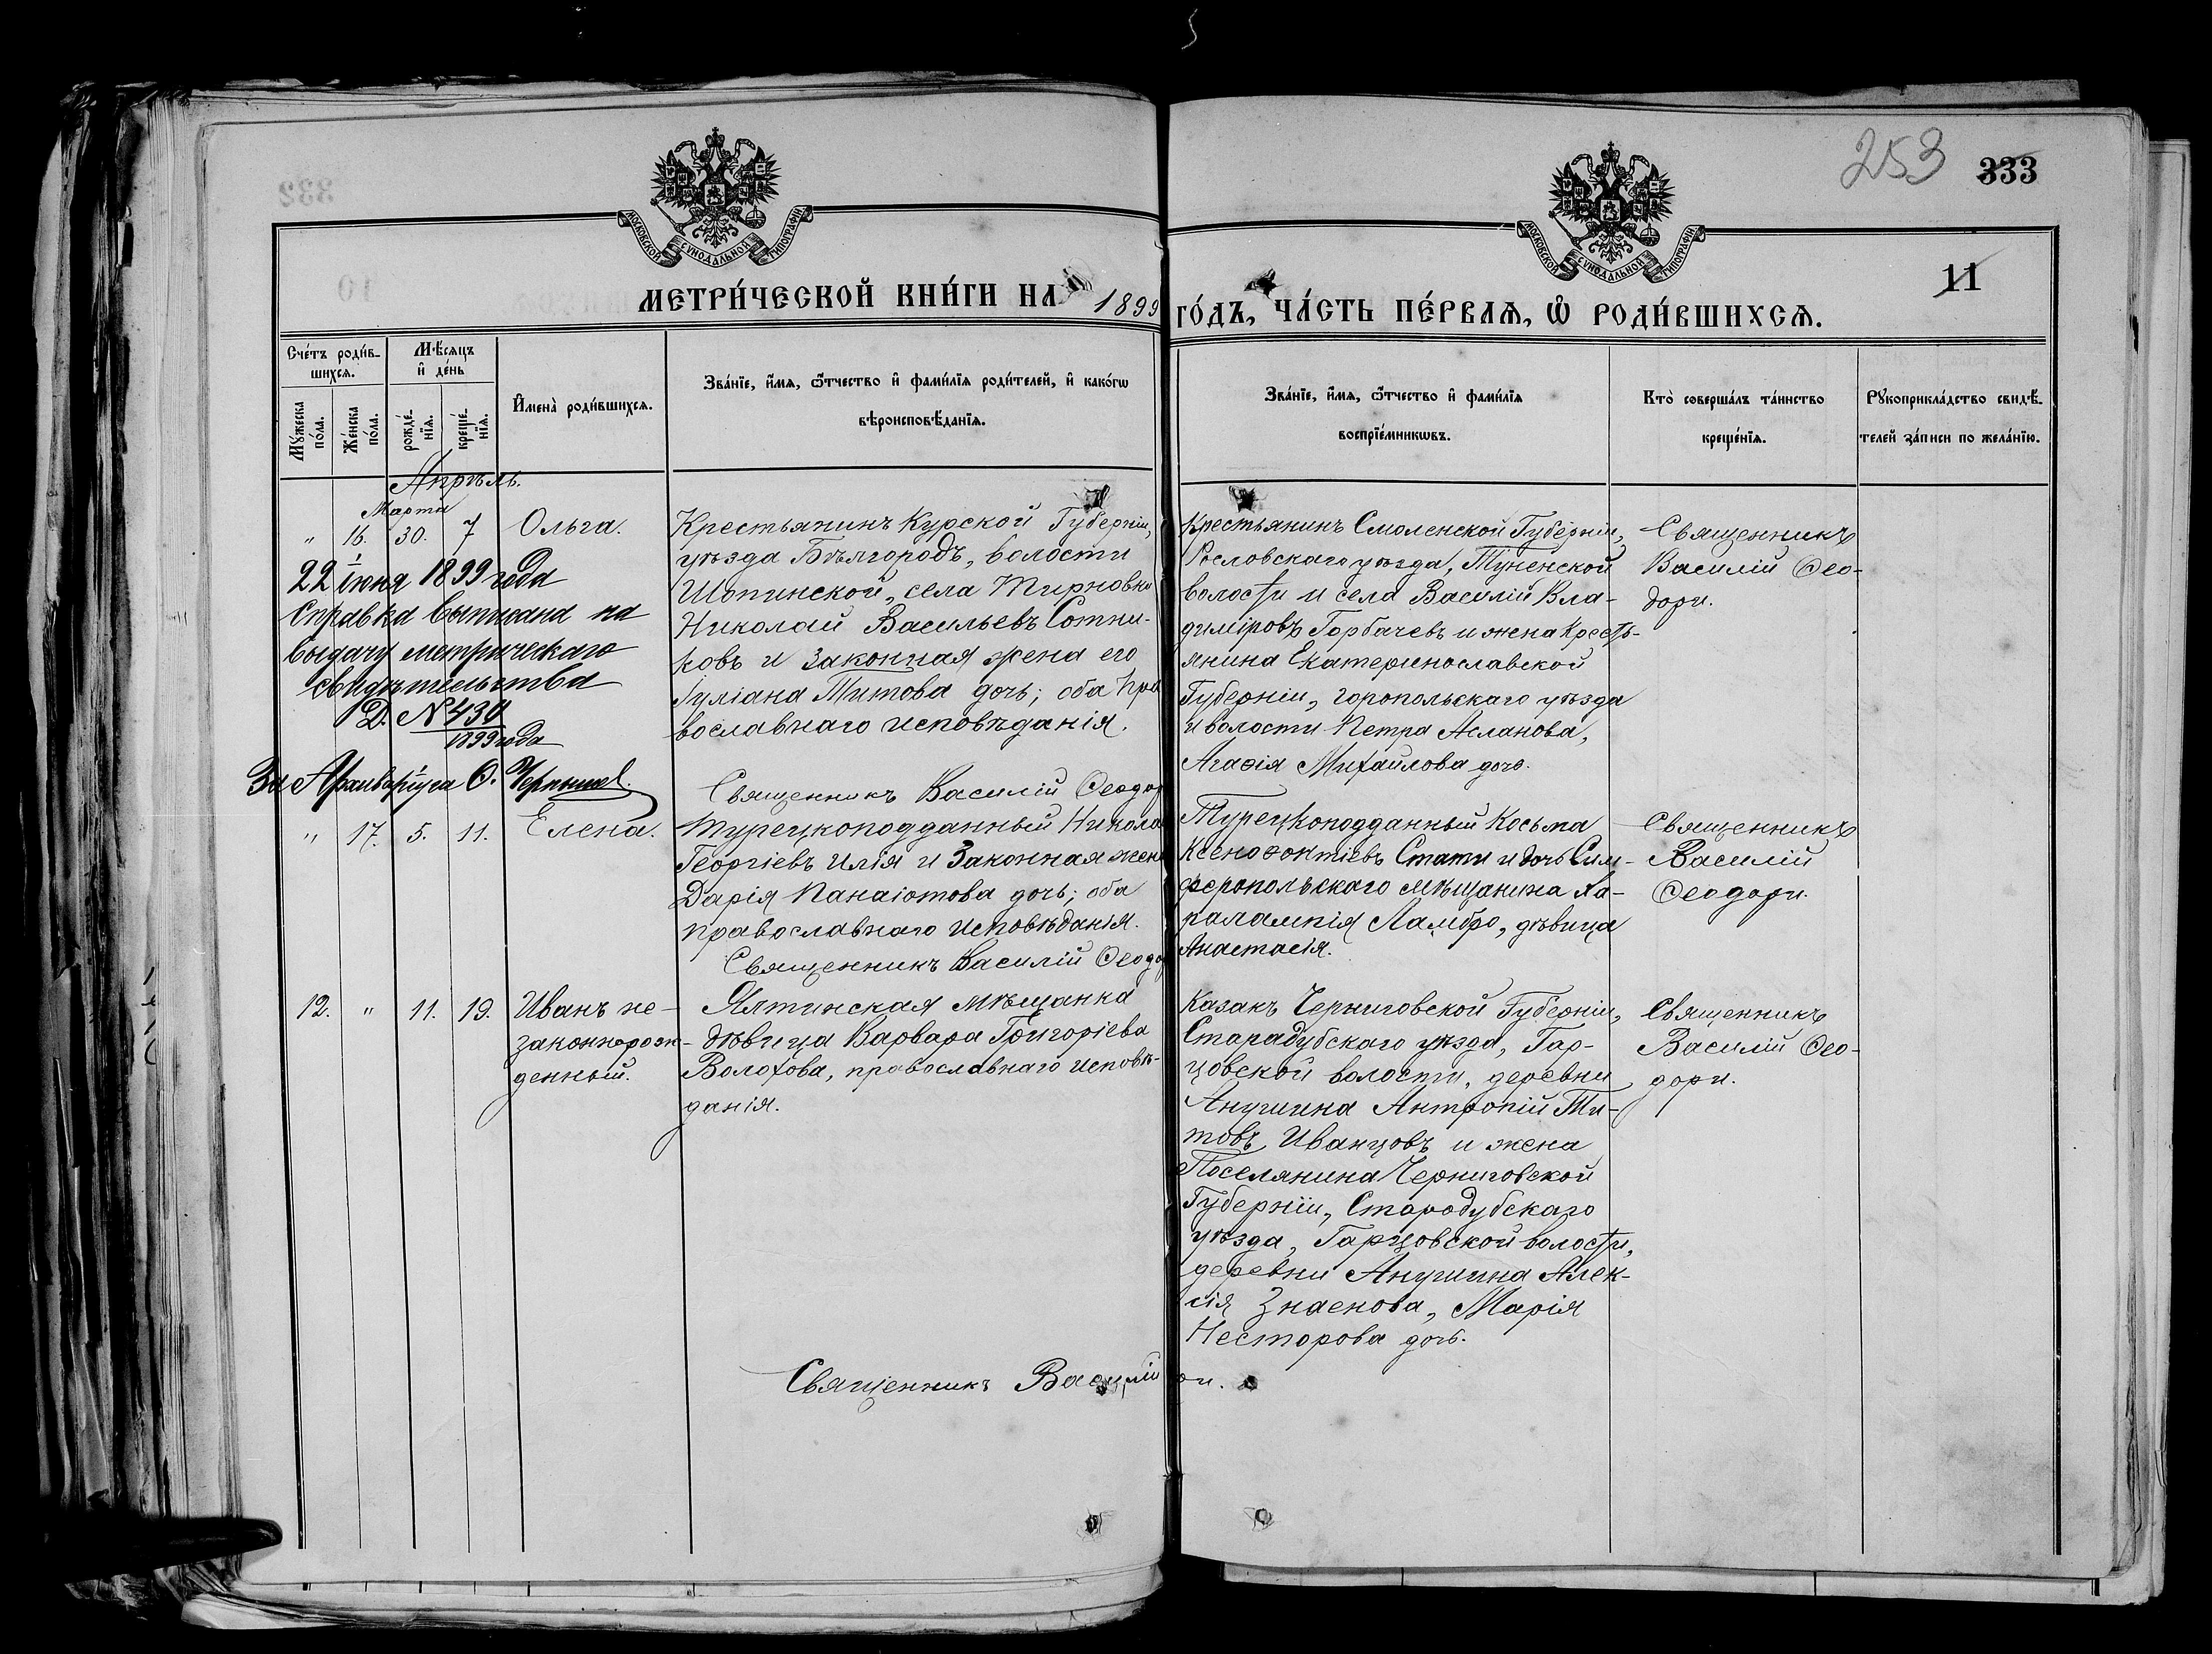 253 333
МОСКОВСКОЙ СѴНОДАЛЬНОЙ ТИПОГРАФІИ
МОСКОВСКОЙ СѴНОДАЛЬНОЙ ТИПОГРАФІИ
11
МЕТРИ́ЧЕСКОЙ КНИ́ГИ НА 1899
ГО́ДЪ, ЧА́СТЬ ПЕ́РВАѦ, Ѡ҆ РОДИ́ВШИХСѦ.
Сче́тъ роди́в-
шихсѧ.
Мѣ́сѧцъ
и҆ де́нь
Мꙋ́жеска
по́ла.
Же́нска
по́ла.
рожде́-
нїѧ.
креще́-
нїѧ.
И҆мена̀ роди́вшихсѧ.
Зва́нїе, и҆́мѧ, ѻ҆́тчество и҆ фами́лїѧ роди́телей, и҆ како́гѡ
вѣроисповѣ́данїѧ.
Зва́нїе, и҆́мѧ, ѻ҆́тчество и҆ фами́лїѧ
воспрїе́мникѡвъ.
Кто̀ соверша́лъ та́инство
креще́нїѧ.
Рꙋкоприкла́дство свидѣ́-
телей за́писи по жела́нїю.
Апрѣль.
Марта
" 16. 30. 7 Ольга.
Крестьянинъ Курской Губерніи,
уѣзда Бѣлгородъ, волости
Шопинской, села Тирновки
Николай Васильевъ Сотни-
ковъ и законная жена его
Іуліана Титова дочь; оба пра
вославнаго исповѣданія.
Священникъ Василій Ѳеодор
Крестьянинъ Смоленской Губерніи,
Рословскаго уѣзда, Туненской
волости и села Василій Вла-
диміровъ Горбачевъ и жена Кресть-
янина Екатеринославской
Губерніи, горопольскаго уѣзда
и волости Петра Асланова,
Агаѳія Михайлова дочь.
Священникъ
Василій Ѳео-
дори.
22 іюня 1899 года
Справка выписана на
выдачу метрическаго
свидѣтельства
Д. №430
1899 года
За Архиваріуса
" 17. 5. 11. Елена.
Турецкоподданный Никола
Георгіевъ Илія и законная жена
Дарія Панаіотова дочь; оба
православнаго исповѣданія.
Священникъ Василій Ѳеодор
Турецкоподданный Косьма
Ксенофонтіевъ Стати и дочь Сим-
феропольскаго мѣщанина Ха-
ралампія Ламбро, дѣвица
Анастасія.
Священникъ
Василій
Ѳеодори.
12. " 11. 19. Иванъ не-
законнорож-
денный.
Ялтинская мѣщанка
дѣвица Варвара Григоріева
Волохова, православнаго исповѣ-
данія.
Казакъ Черниговской Губерніи,
Старадубскаго уѣзда, Гар-
цовской волости, деревни
Анушина Антропій Ти-
товъ Иванцовъ и жена
Поселянина Черниговской
Губерніи, Стародубскаго
уѣзда, Гарцовской волости,
деревни Анушина Алек-
сія Знаенова, Марія
Несторова дочь.
Священникъ
Василій Ѳео-
дори.
Священникъ Василій
ри.